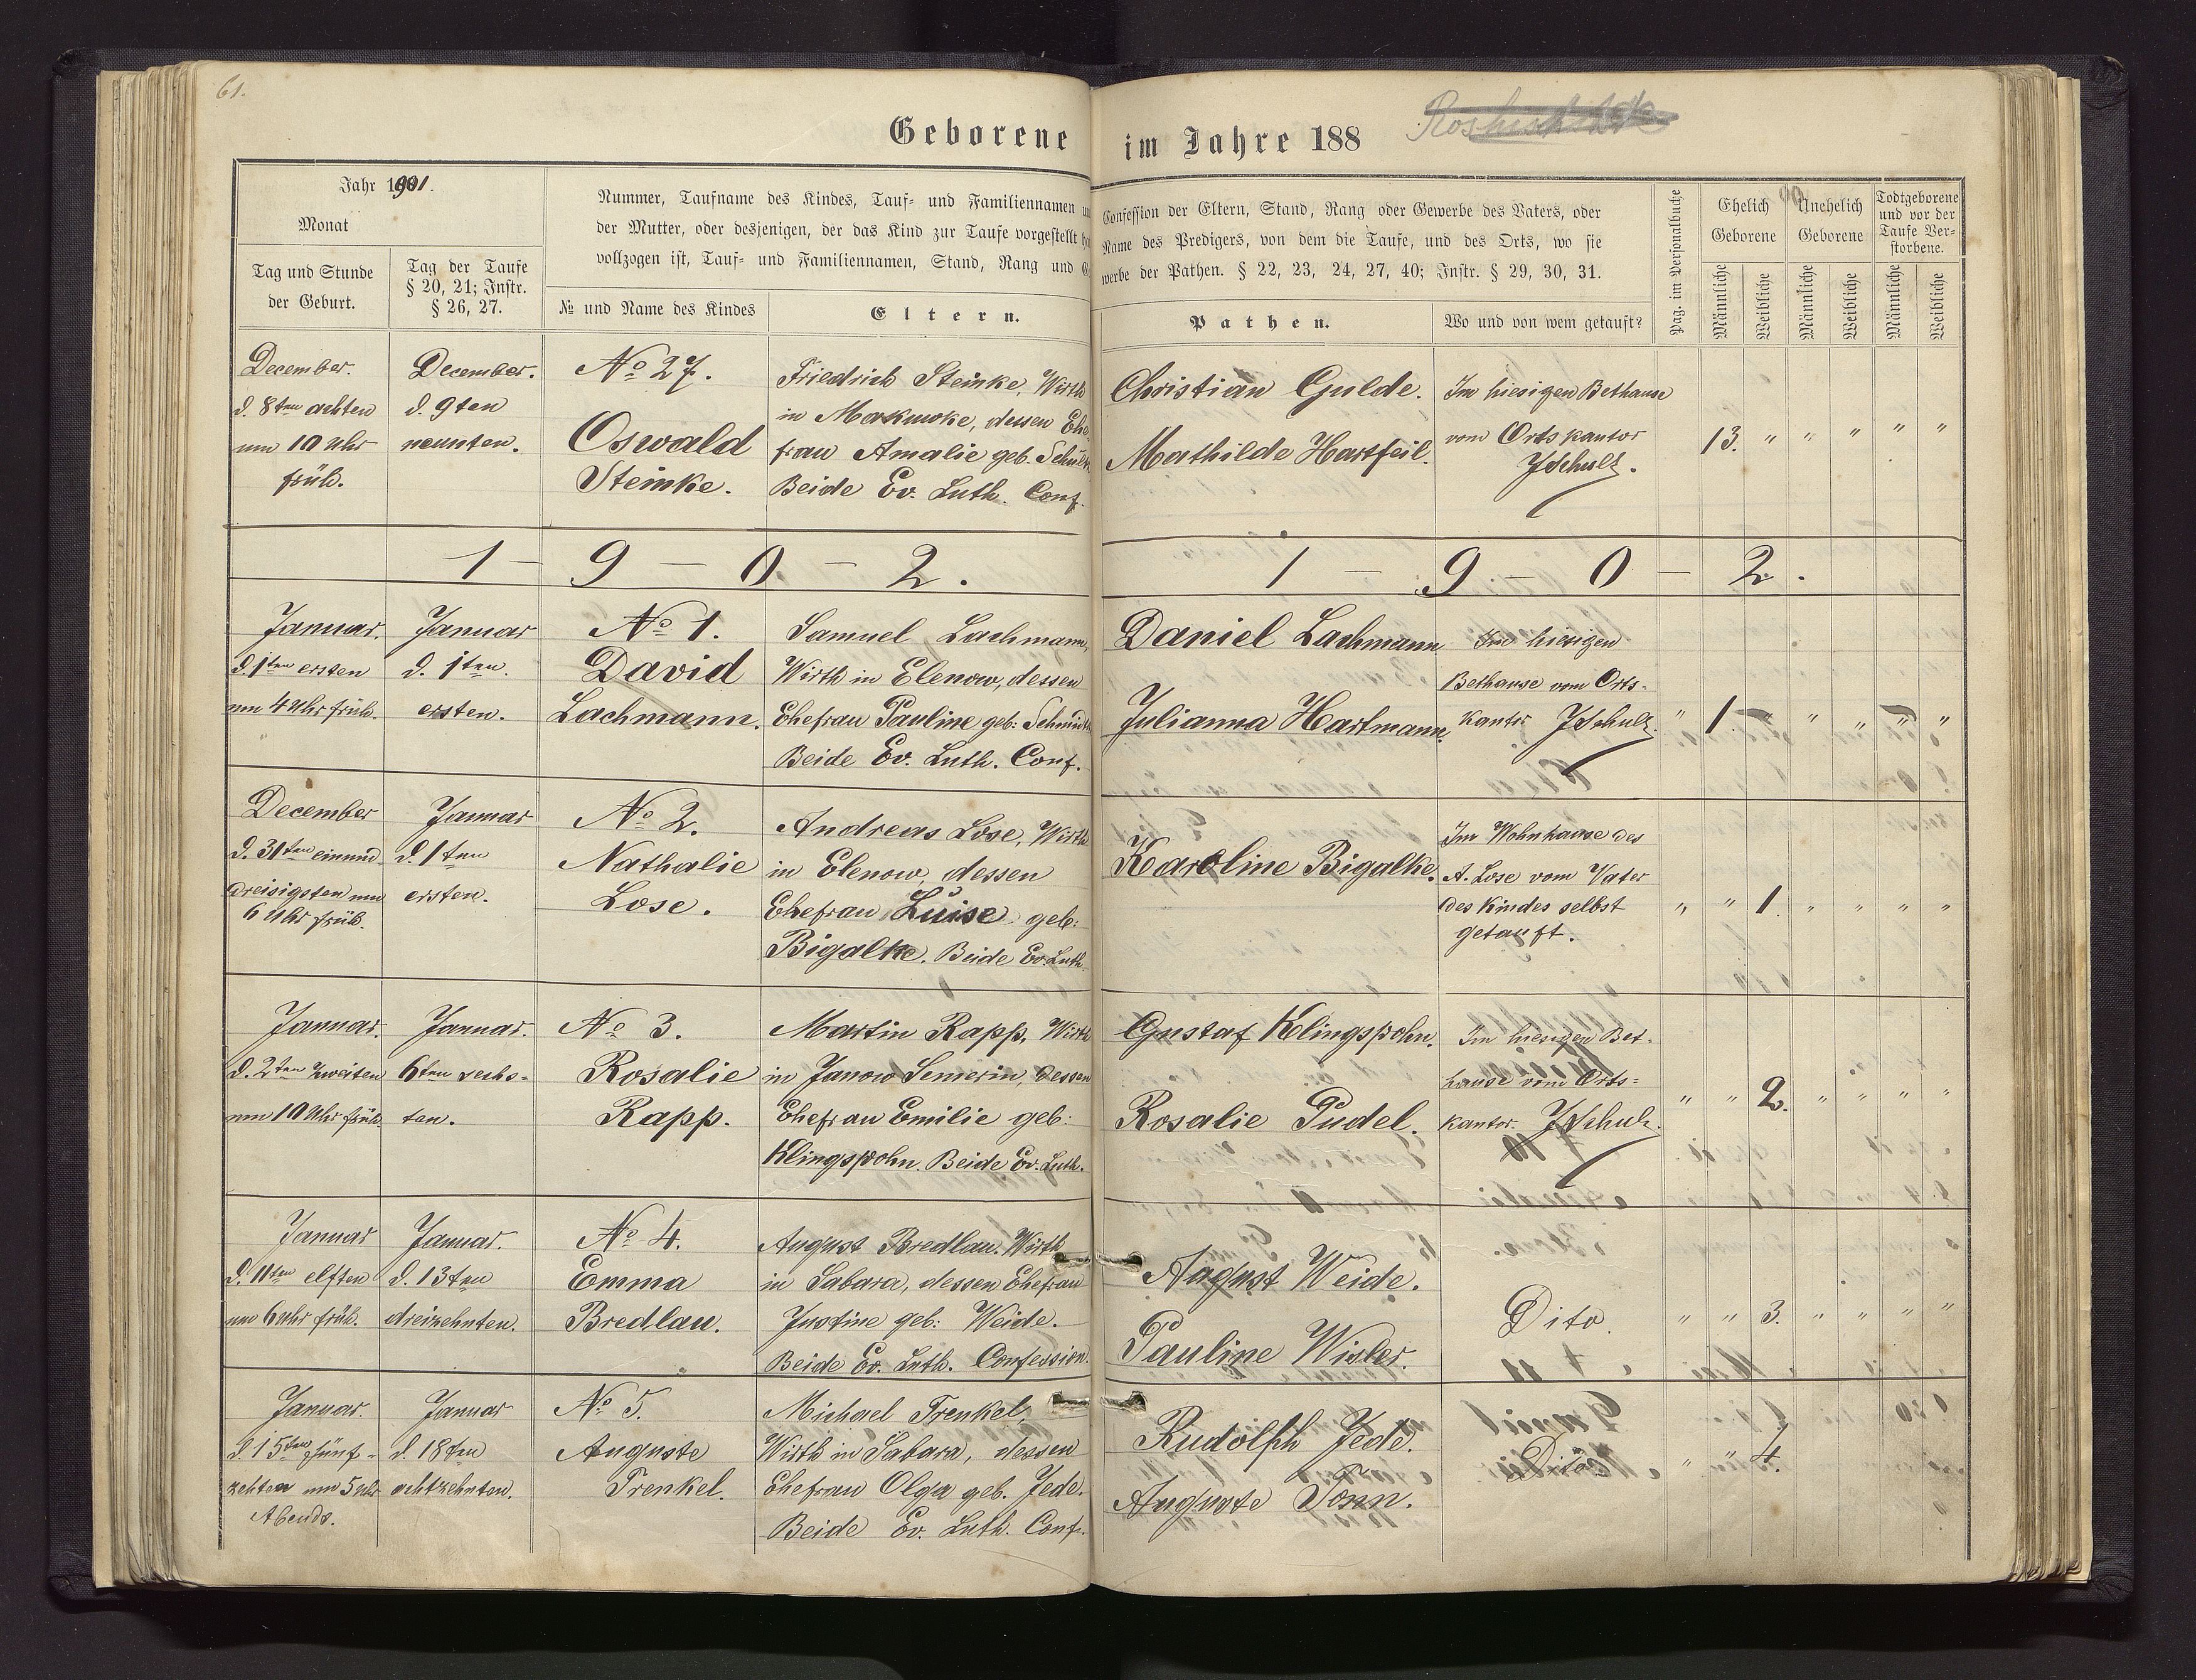 61.
Geborene im Jahre 188
Jahr 1901.
Monat
Tag und Stunde
der Geburt.
Tag der Taufe
§ 20, 21; Instr.
§ 26, 27.
Nummer, Taufname des Kindes, Tauf- und Familiennamen
der Mutter, oder desjenigen, der das Kind zur Taufe vorgestellt
vollzogen ist, Tauf- und Familiennamen, Stand, Rang und
№ und Name des Kindes
Eltern.
Confession der Eltern, Stand, Rang oder Gewerbe des Vaters, oder
Name des Predigers, von dem die Taufe, und des Orts, wo sie
werbe der Pathen. § 22, 23, 24, 27, 40; Instr. § 29, 30, 31.
Pathen.
Wo und von wem getauft?
Pag. im Personalbuche
Ehelich
Geborene
Unehelich
Geborene
Todtgeborene
und vor der
Taufe Ver-
storbene.
Männliche
Weibliche
Männliche
Weibliche
Männliche
Weibliche
December.
d. 8ten achten
um 10 Uhr
früh.
December.
d. 9ten
neunten.
№ 27.
Oswald
Steinke.
Friedrich Steinke, Wirth
in Makuwke, dessen Ehe
frau Amalie geb. Schulz
Beide Ev. Luth. Conf.
Christian Gulde.
Mathilde Hartfeil.
Im hiesigen Bethause
vom Ortskantor
JSchulz.
13. " " " " "
1 – 9 – 0 – 2.
1 – 9 – 0 – 2.
Januar.
d. 1ten ersten
um 4 Uhr früh.
Januar
d. 1ten.
ersten.
№ 1.
David
Lachmann.
Samuel Lachmann,
Wirth in Elenow, dessen
Ehefrau Pauline geb: Schmidt
Beide Ev. Luth. Conf.
Daniel Lachmann
Julianna Hartmann.
Im hiesigen
Bethause vom Orts-
kantor JSchulz.
" 1 " " " " "
December
d. 31ten einund
dreisigsten um
6 Uhr früh.
Januar
d. 1ten
ersten.
№ 2.
Nathalie
Lose.
Andreas Lose, Wirth
in Elenow, dessen
Ehefrau Luise geb:
Bigalke. Beide Ev. Luth.
Karoline Bigalke.
Im Wohnhause des
A. Lose vom Vater
des Kindes selbst
getauft.
" " 1. " " " "
Januar.
d. 2ten zweiten
um 10 Uhr früh.
Januar.
6ten sechs-
ten.
№ 3.
Rosalie
Rapp.
Martin Rapp, Wirth
in Janow Semerin, dessen
Ehefrau Emilie geb:
Klingspohn. Beide Ev. Luth.
Gustaf Klingspohn.
Rosalie Pudel.
Im hiesigen Bet-
hause vom Orts-
kantor. JSchulz.
" " 2. " " " "
Januar
d. 11ten elften
um 6 Uhr früh.
Januar.
d. 13ten
dreizehnten.
№ 4.
Emma
Bredlau.
August Bredlau. Wirth
in Sabara, dessen Ehefrau
Justine geb: Weide.
Beide Ev. Luth. Confession.
August Weide.
Pauline Wisler.
Dito.
" " 3. " " " "
Januar.
d. 15ten fünf-
zehten um 5 Uhr
Abends.
Januar
d. 18ten
achtzehnten.
№ 5.
Auguste
Trenkel.
Michael Trenkel,
Wirth in Sabara, dessen
Ehefrau Olga geb. Jede.
Beide Ev. Luth. Conf.
Rudolph Jede.
Auguste Tonn.
Dito.
" " 4.